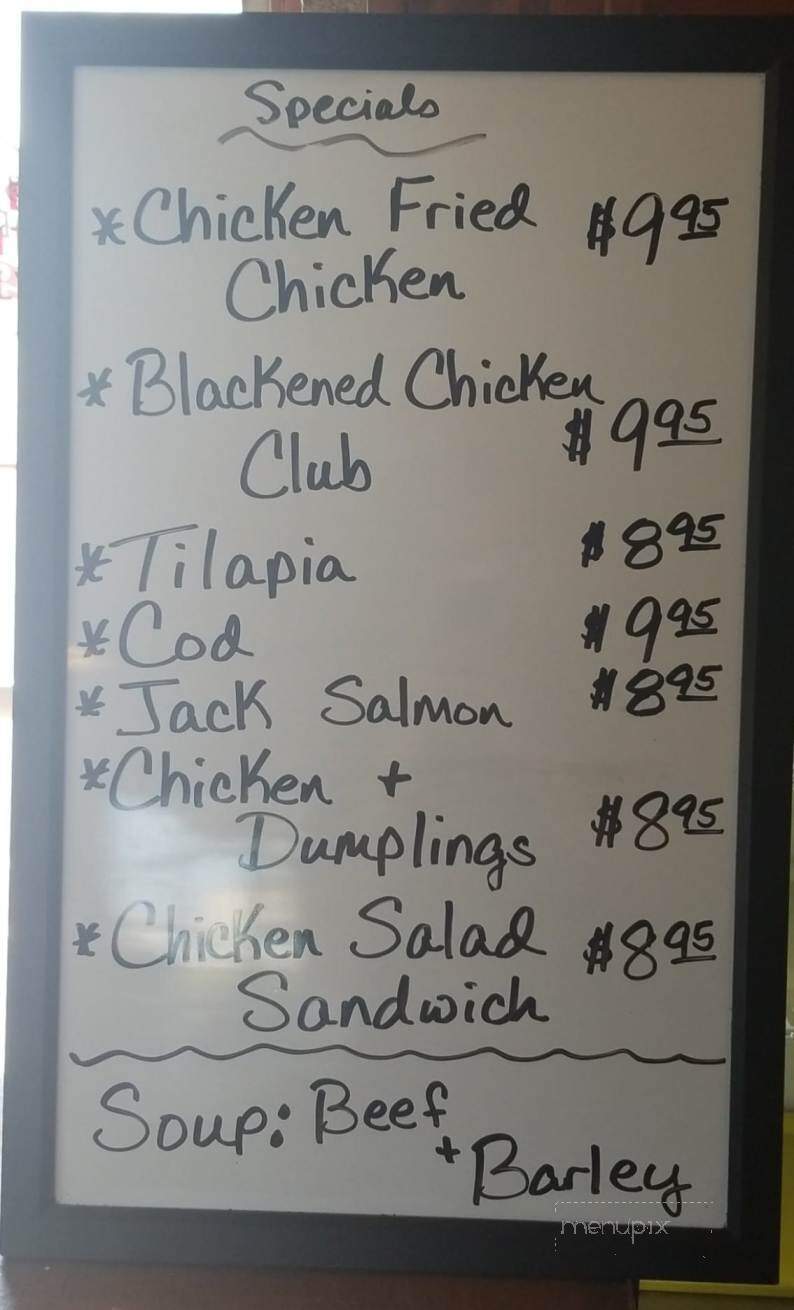 Specials
* Chicken Fried $9.95
Chicken
* Blackened Chicken
Club $9.95
* Tilapia $8.95
* Cod $9.95
* Jack Salmon $8.95
* Chicken +
Dumplings $8.95
* Chicken Salad $8.95
Sandwich
Soup: Beef
+ Barley
menupix